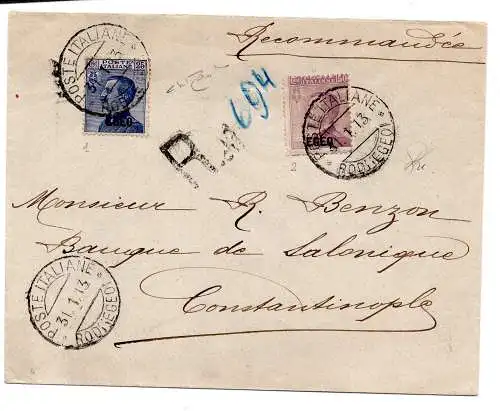 Recommandée
POSTE ITALIANE
POSTE ITALIANE
25
25
EGEO
694
R
EGEO
POSTE ITALIANE
31.1.13
RODI (EGEO)
1
2
Monsieur R. Benzon
Banque de Salonique
Constantinople
POSTE ITALIANE
31.1.13
RODI (EGEO)